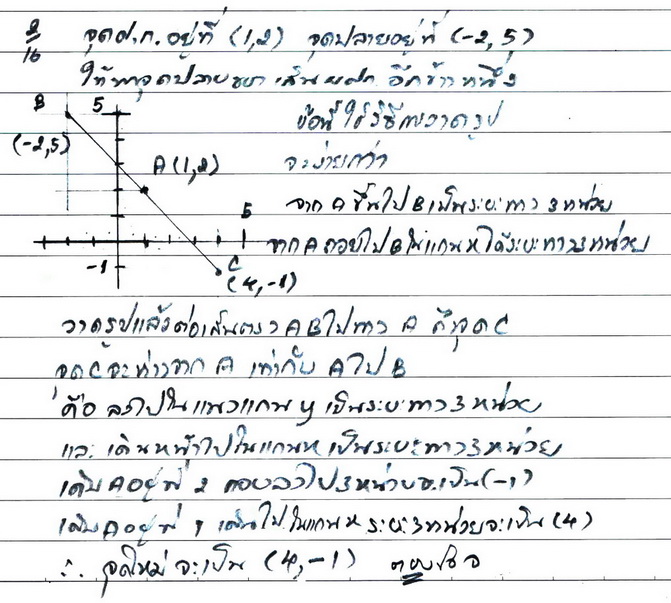 2/16 จุด ศ.ก. อยู่ที่ (1,2) จุดปลายอยู่ที่ (-2,5)
ให้หาจุดปลายของเส้นผ่าศก. อีกข้างหนึ่ง
B 5
ข้อนี้ใช้วิธีการวาดรูป
(-2,5) A (1,2) จะง่ายกว่า
จาก A ขึ้นไป B เป็นระยะทาง 3 หน่วย
5
จาก A ถอยไป B ในแกน x ได้ระยะทาง 3 หน่วย
-1 C
(4,-1)
วาดรูปแล้วต่อเส้นตรง AB ไปทาง A ถึงจุด C
จุด C จะห่างจาก A เท่ากับ A ไป B
คือ ลงไปในแนวแกน y เป็นระยะทาง 3 หน่วย
และ เดินหน้าไปในแกน x เป็นระยะทาง 3 หน่วย
เดิม A อยู่ที่ 2 ถอยลงไป 3 หน่วยจะเป็น (-1)
เดิม A อยู่ที่ 1 เดินไปในแกน x ระยะ 3 หน่วยจะเป็น (4)
∴ จุดใหม่จะเป็น (4,-1) ตอบ